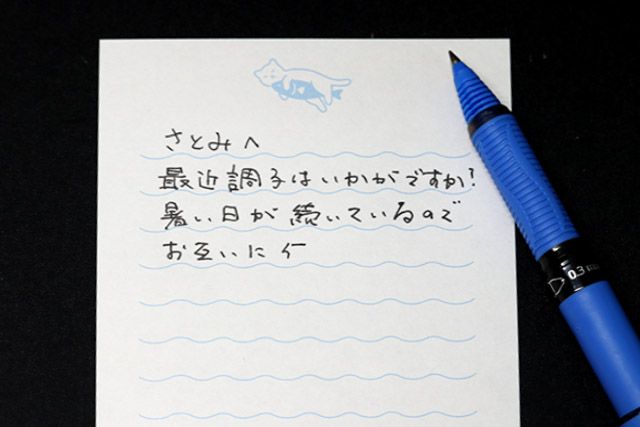 さとみへ
最近調子はいかがですか?
暑い日が続いているので
お互いに
0.3